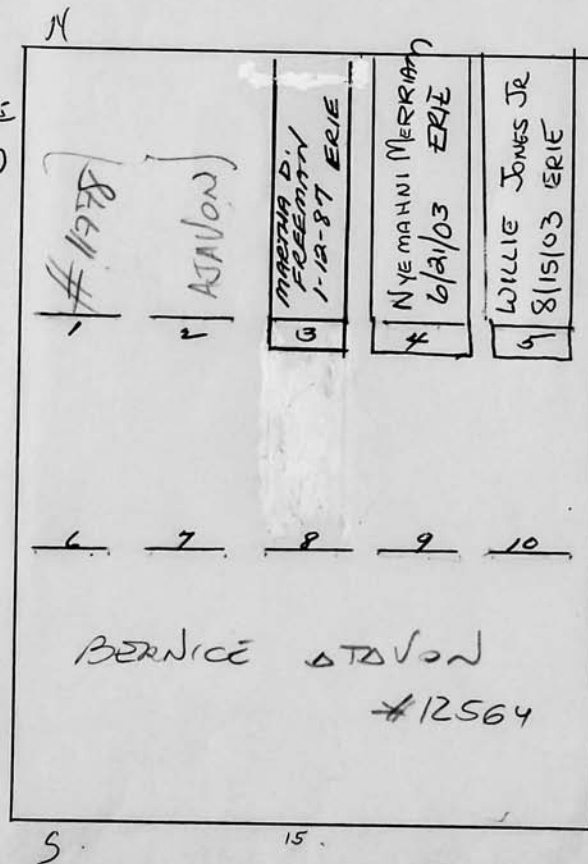 N
# 11778
AJAVON
MARTHA D.
FREEMAN
1-12-87 ERIE
NYEMAHNI MERRIAM
6/21/03 ERIE
WILLIE JONES JR
8/15/03 ERIE
1 2 3 4 5
6 7 8 9 10
BERNICE AJAVON
#12564
S 15.